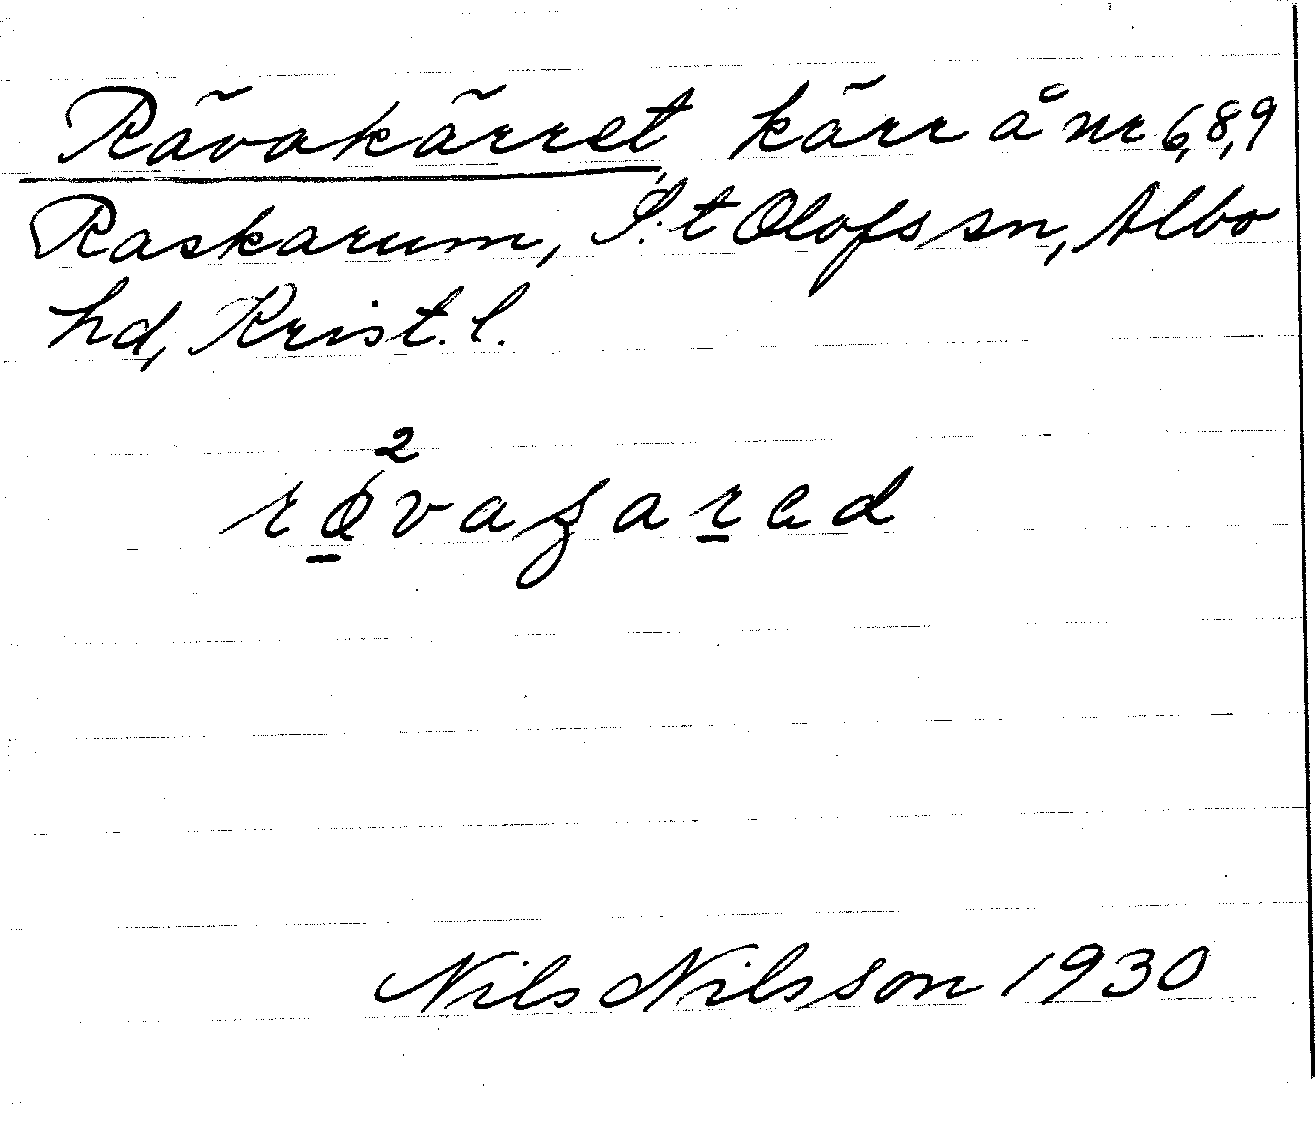 Rävakärret, kärr å nr 6,8,9
Raskarum, S:t Olofs sn, Albo
hd, Krist. l.
2
Nils Nilsson 1930